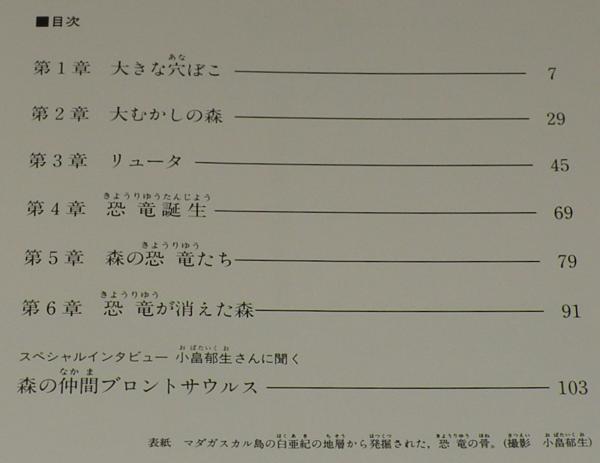 ■目次
第1章 大きな穴ぼこ 7
第2章 大むかしの森 29
第3章 リュータ 45
第4章 恐竜誕生 69
第5章 森の恐竜たち 79
第6章 恐竜が消えた森 91
スペシャルインタビュー 小畠郁生さんに聞く
森の仲間ブロントサウルス 103
表紙 マダガスカル島の白亜紀の地層から発掘された，恐竜の骨。(撮影 小畠郁生)